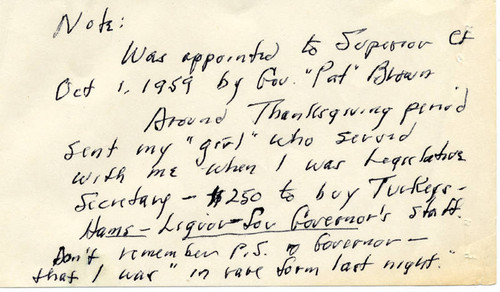 Note:
Was appointed to Superior Ct
Oct 1, 1959 by Gov. "Pat" Brown
Around Thanksgiving period
sent my "girl" who served
with me when I was Legislative
Secretary - $250 to buy Turkeys -
Hams - Liquor - for Governor's staff.
Don't remember P.S. Governor -
that I was "in rare form last night."